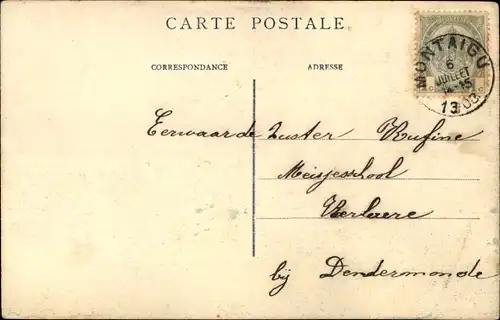 CARTE POSTALE
CORRESPONDANCE
ADRESSE
MONTAIGU
6
JUILLET
14-15
1303
Eerwaarde Zuster Rufine
Meisjesschool
Kerlaere
bij Dendermonde